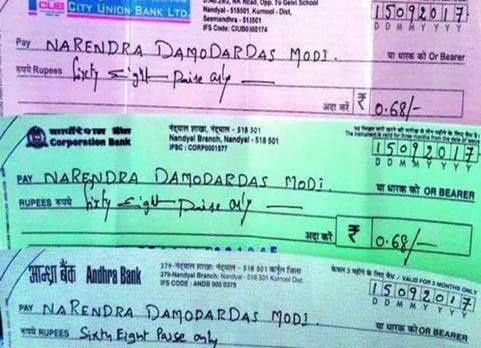 CUB CITY UNION BANK LTD.
D.No.25/2, NK Road, Opp. To Gelvi School
Nandyal - 518501, Kurnool - Dist,
Seemandhra - 513501
IFS Code: CIUB0000174
15092017
D D M M Y Y Y Y
PAY NARENDRA DAMODARDAS MODI या धारक को Or Bearer
रुपये Rupees Sixty Eight Paise only
अदा करें ₹ 0.68/-
कार्पोरेशन बैंक नंद्याल शाखा, नंद्याल - 518 501
Corporation Bank Nandyal Branch, Nandyal - 518 501
IFSC : CORP0001577
15092017
D D M M Y Y Y Y
PAY NARENDRA DAMODARDAS MODI. या धारक को OR BEARER
RUPEES रुपये Sixty Eight Paise only
अदा करें ₹ 0.68/-
आन्ध्रा बैंक Andhra Bank
379-नंद्याल शाखा: नंद्याल - 518 501 कर्नूल जिला
379-Nandyal Branch: Nandyal - 518 501 Kurnool Dist.
IFS CODE : ANDB 000 0379
केवल 3 महीने के लिए वैध / VALID FOR 3 MONTHS ONLY
15092017
D D M M Y Y Y Y
PAY NARENDRA DAMODARDAS MODI. या धारक को OR BEARER
रुपये RUPEES Sixty Eight Paise only